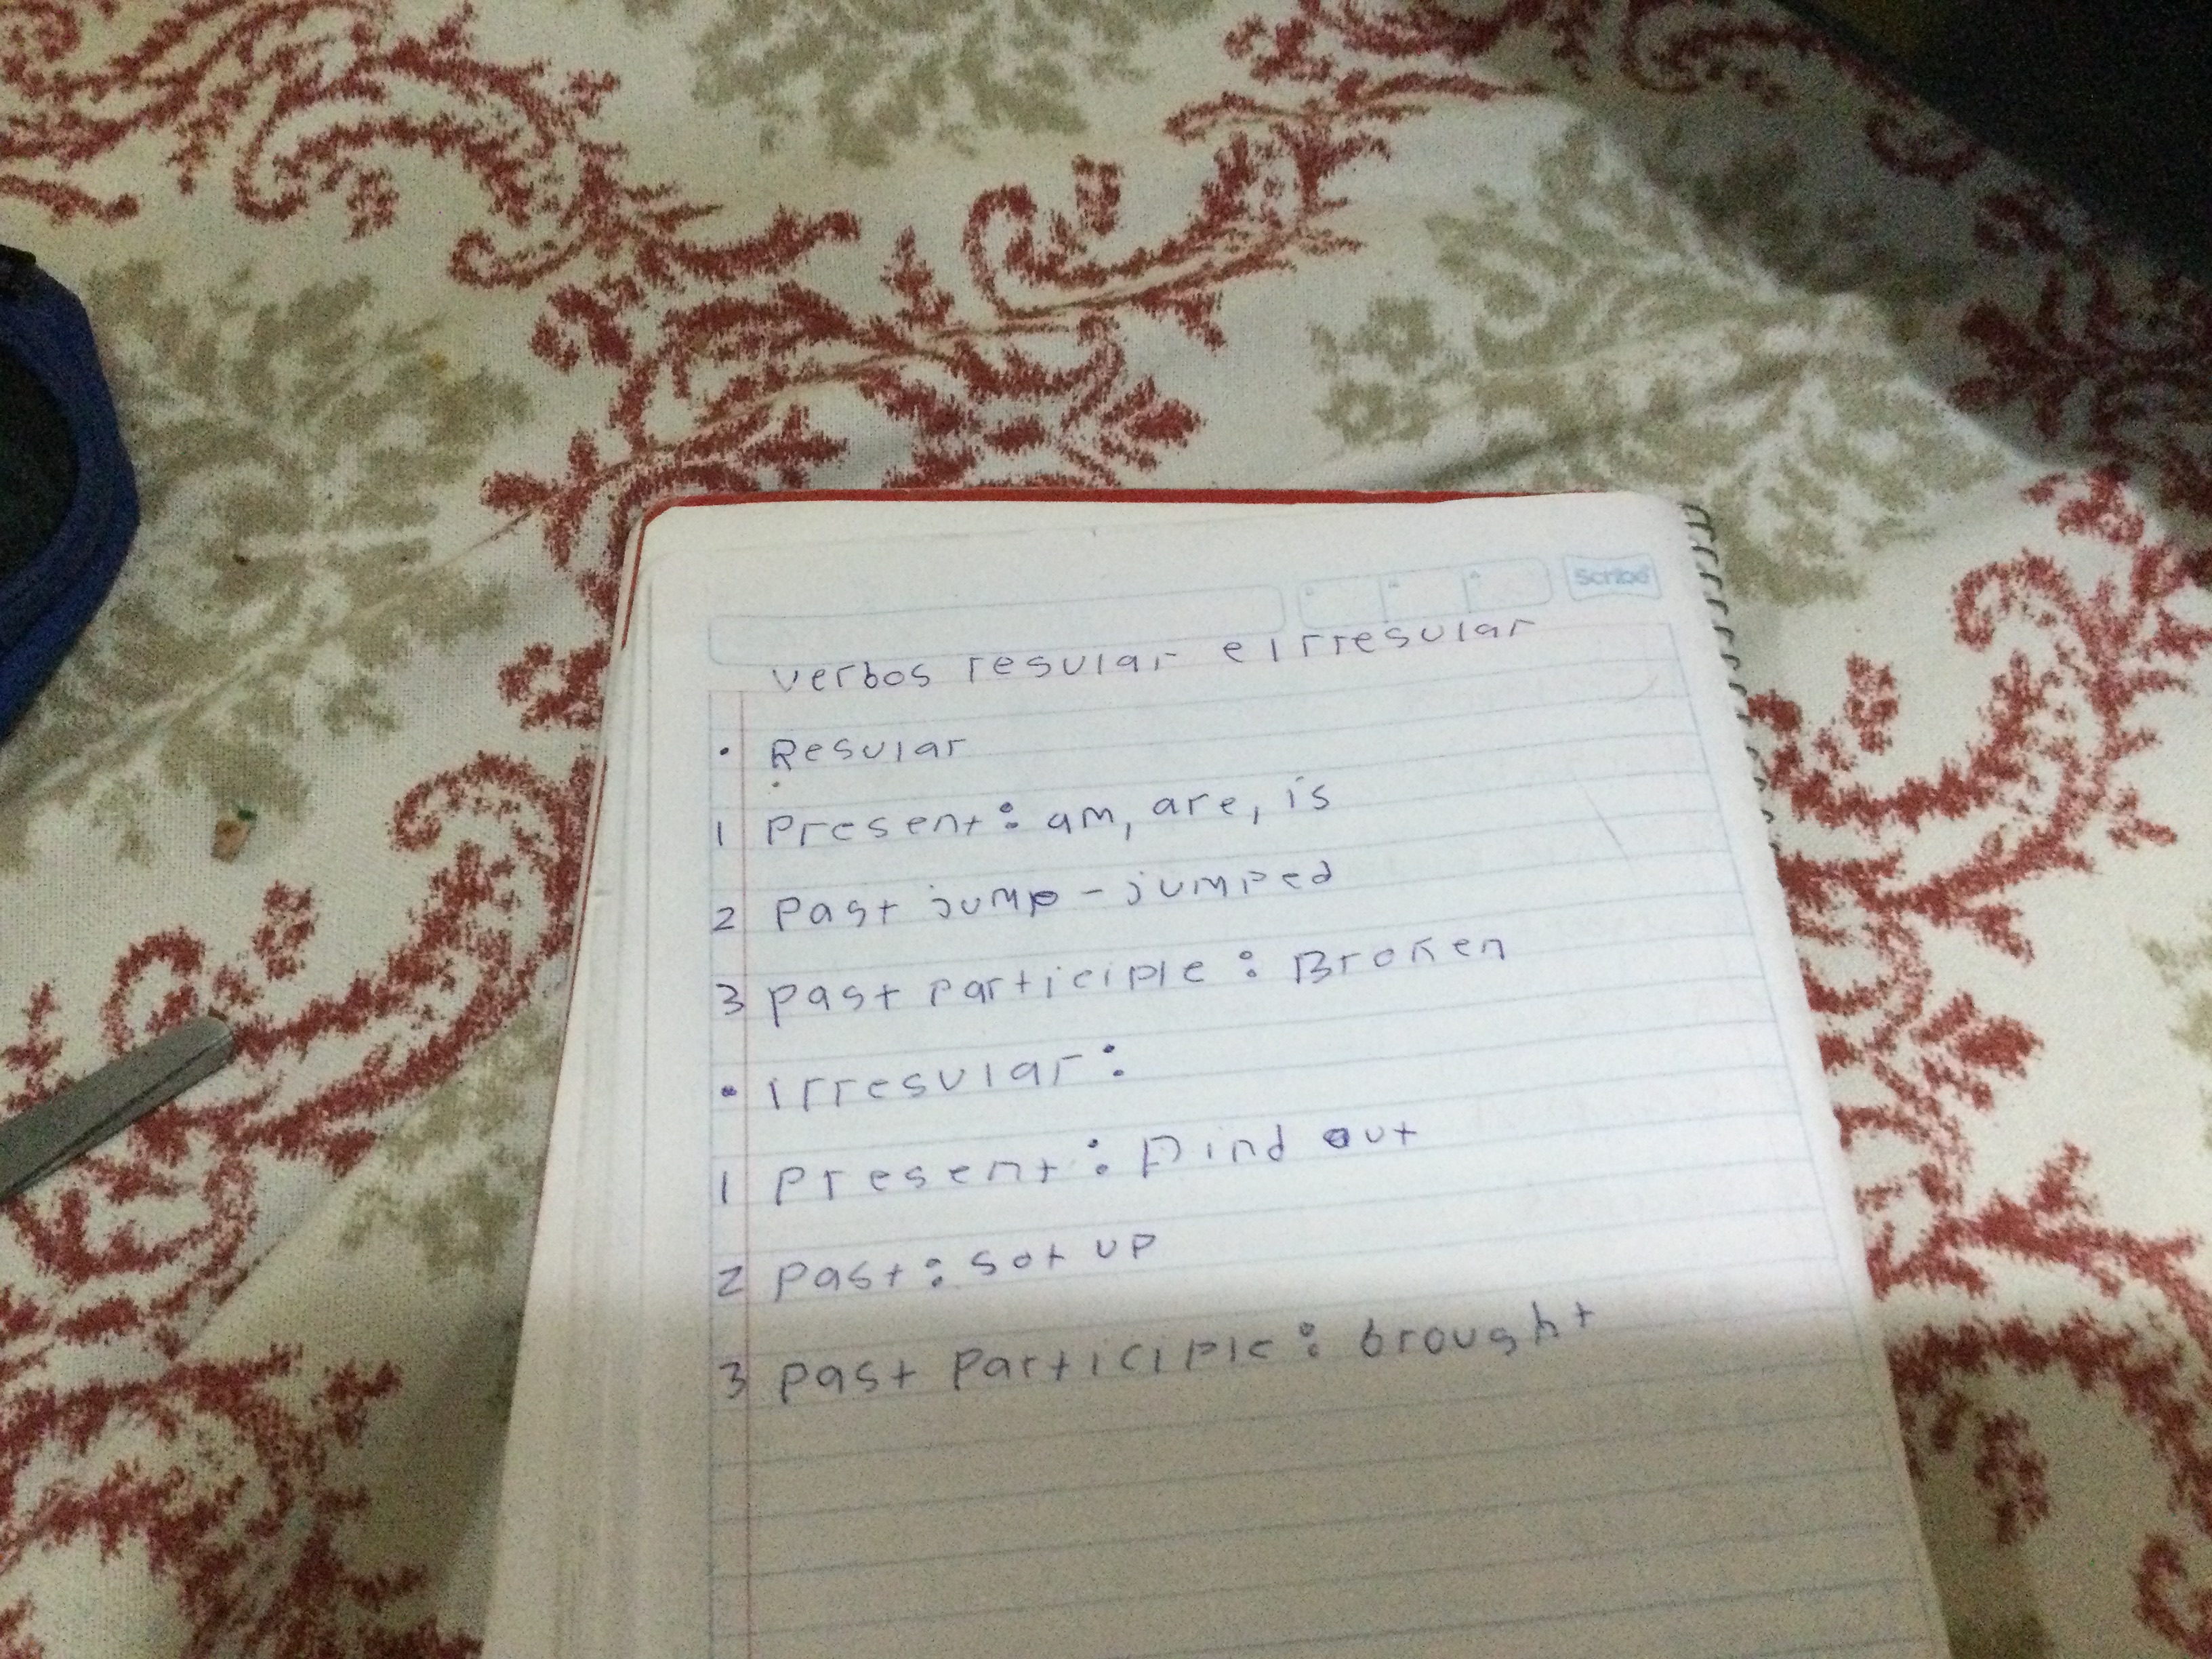 Scribe
verbos regular e irregular
• Regular
1 Present: am, are, is
2 Past jump - jumped
3 past participle: Broken
• irregular:
1 present: Find out
2 past: got up
3 past participle: brought